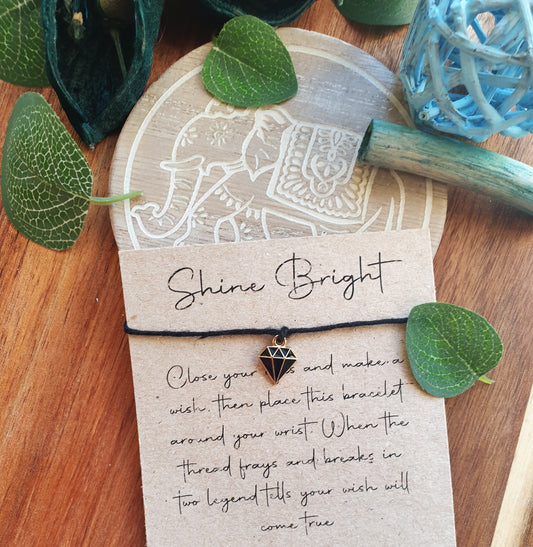 Shine Bright
Close your and make a
wish, then place this bracelet
around your wrist. When the
thread frays and breaks in
two legend tells your wish will
come true